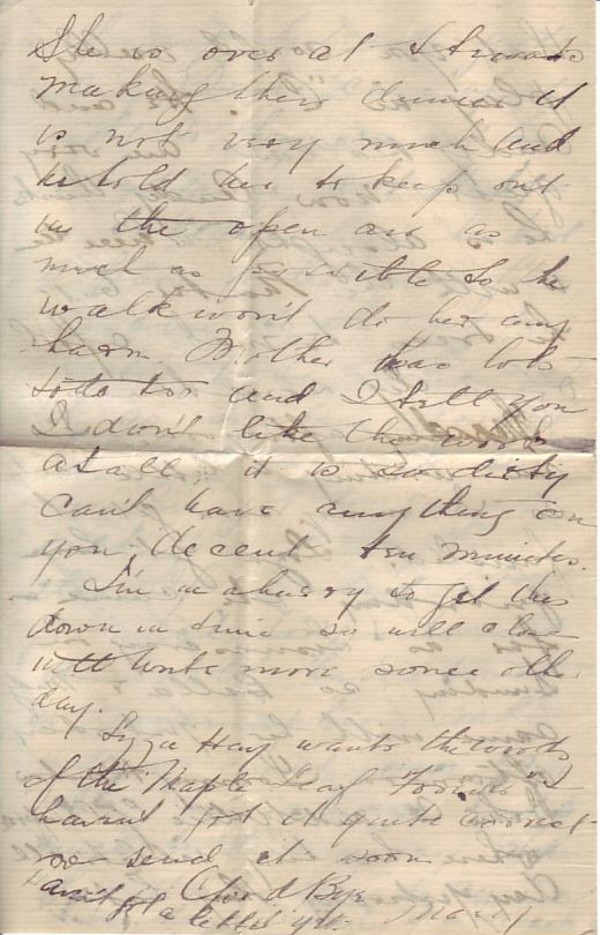 She is over at Stewarts
making their dinner it
is not very much and
he told her to keep out
in the open air as
much as possible so the
walk won't do her any
harm. Mother has lots
to do too and I tell you
I don't like the work
at all it is so dirty
can't have anything on
you decent ten minutes.
I'm in a hurry to get this
down in time so will close
will write more some other
day.
Lizzie Hay wants the words
of the "Maple Leaf Forever" &
havn't got it quite correct
so send it soon
Good Bye
got a letter yet